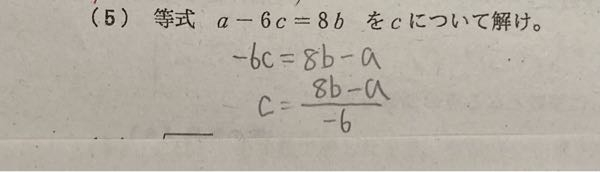 (5) 等式 a-6c=8b をcについて解け。
-6c=8b-a
c=\frac{8b-a}{-6}